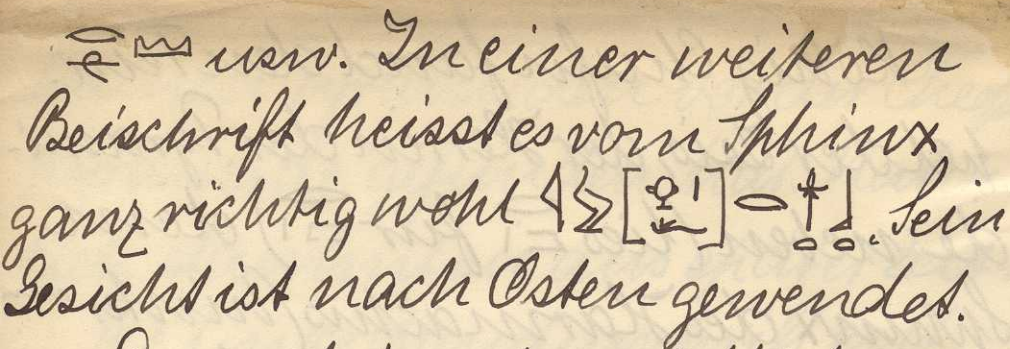 usw. In einer weiteren
Beischrift heisst es vom Sphinx
ganz richtig wohl [ ] . Sein
Gesicht ist nach Osten gewendet.